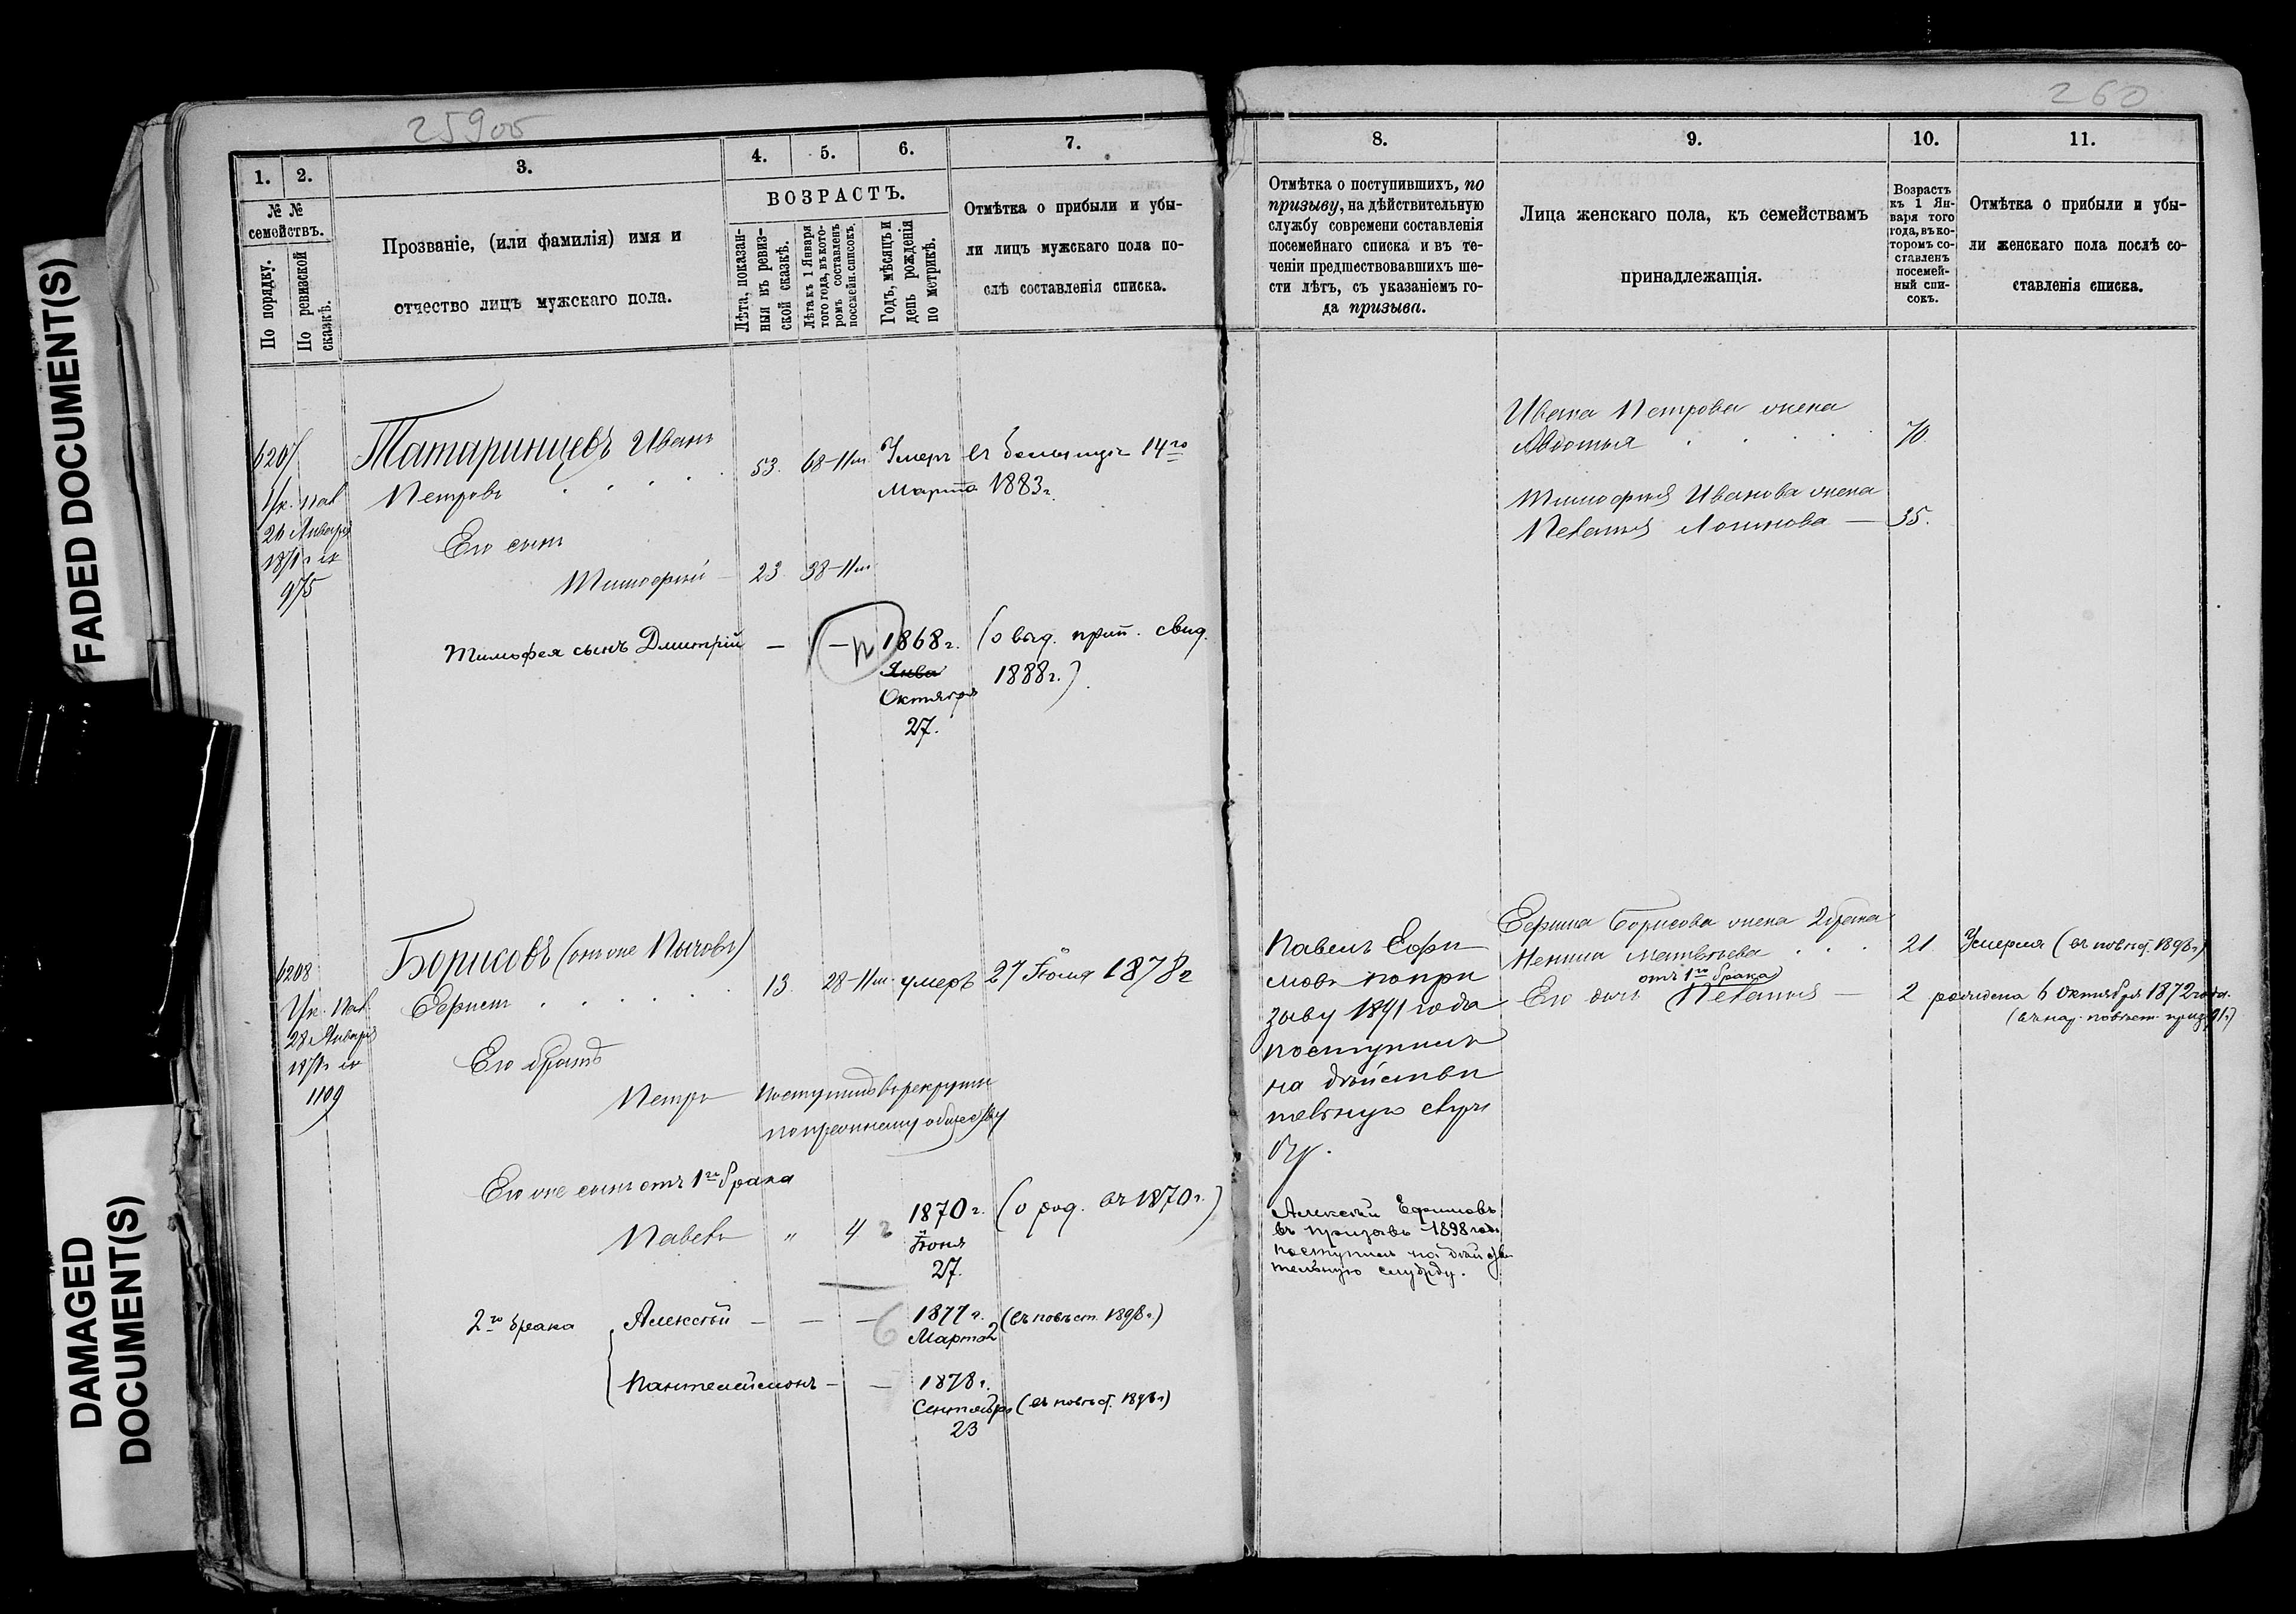 FADED DOCUMENT(S)
DAMAGED
DOCUMENT(S)
259об
1.
2.
3.
4.
5.
6.
7.
№ №
семействъ.
По порядку.
По ревизской
сказкѣ.
Прозваніе, (или фамилія) имя и
отчество лицъ мужскаго пола.
ВОЗРАСТЪ.
Лѣта, показан-
ныя въ ревиз-
ской сказкѣ.
Лѣта къ 1 Января
того года, въ кото-
ромъ составленъ
посемейн. списокъ.
Годъ, мѣсяцъ и
день рожденія
по метрикѣ.
Отмѣтка о прибыли и убы-
ли лицъ мужскаго пола по-
слѣ составленія списка.
6207
Ук. пал
26 Января
1871 г. №
975
Татаринцевъ Иванъ
Петровъ
53. 68-11 м.
Умеръ въ больницѣ 14го
Марта 1883 г.
Его сынъ
Тимофей — 23. 38-11 м.
Тимофея сынъ Дмитрій — 1868 г. (о выд. прип. свид.
Янва
1888 г.)
Октября
27.
6208
Ук. Пал.
28 Января
187 г. №
1109
Борисовъ (онъ же Пычовъ)
Ефимъ
13. 28-11 м. умеръ 27 Іюля 1878 г
Его братъ
Петръ поступилъ въ рекруты
по прежнему обществу
Его же сынъ отъ 1го брака
Павелъ " 4 1870 г. (о род. въ 1870 г.)
Іюня
27.
2го брака Алексѣй — — — 6 1877 г. (въ повѣст. 1898 г)
Марта 2
Пантелеймонъ — — 1878 г.
Сентября (въ повѣст. 1898 г)
23
260
8.
9.
10.
11.
Отмѣтка о поступившихъ, по
призыву, на дѣйствительную
службу современи составленія
посемейнаго списка и въ те-
ченіи предшествовавшихъ ше-
сти лѣтъ, съ указаніемъ го-
да призыва.
Лица женскаго пола, къ семействамъ
принадлежащія.
Возрастъ
къ 1 Ян-
варя того
года, въ ко-
торомъ со-
ставленъ
посемей-
ный спи-
сокъ.
Отмѣтка о прибыли и убы-
ли женскаго пола послѣ со-
ставленія списка.
Ивана Петрова жена
Авдотья 70
Тимофея Иванова жена
Пелагея Логинова — 35.
Павелъ Ефи-
мовъ по при
зыву 1891 года
поступилъ
на дѣйстви
тельную служ
бу.
Алексѣй Ефимовъ
въ призывъ 1898 года
поступилъ на дѣйстви
тельную службу.
Ефима Борисова жена 2 брака
Матвѣева 21 Умерла (въ повѣст. 1898 г)
отъ 1го брака
Его дочь Пелагея — 2 рождена 6 октября 1872 года.